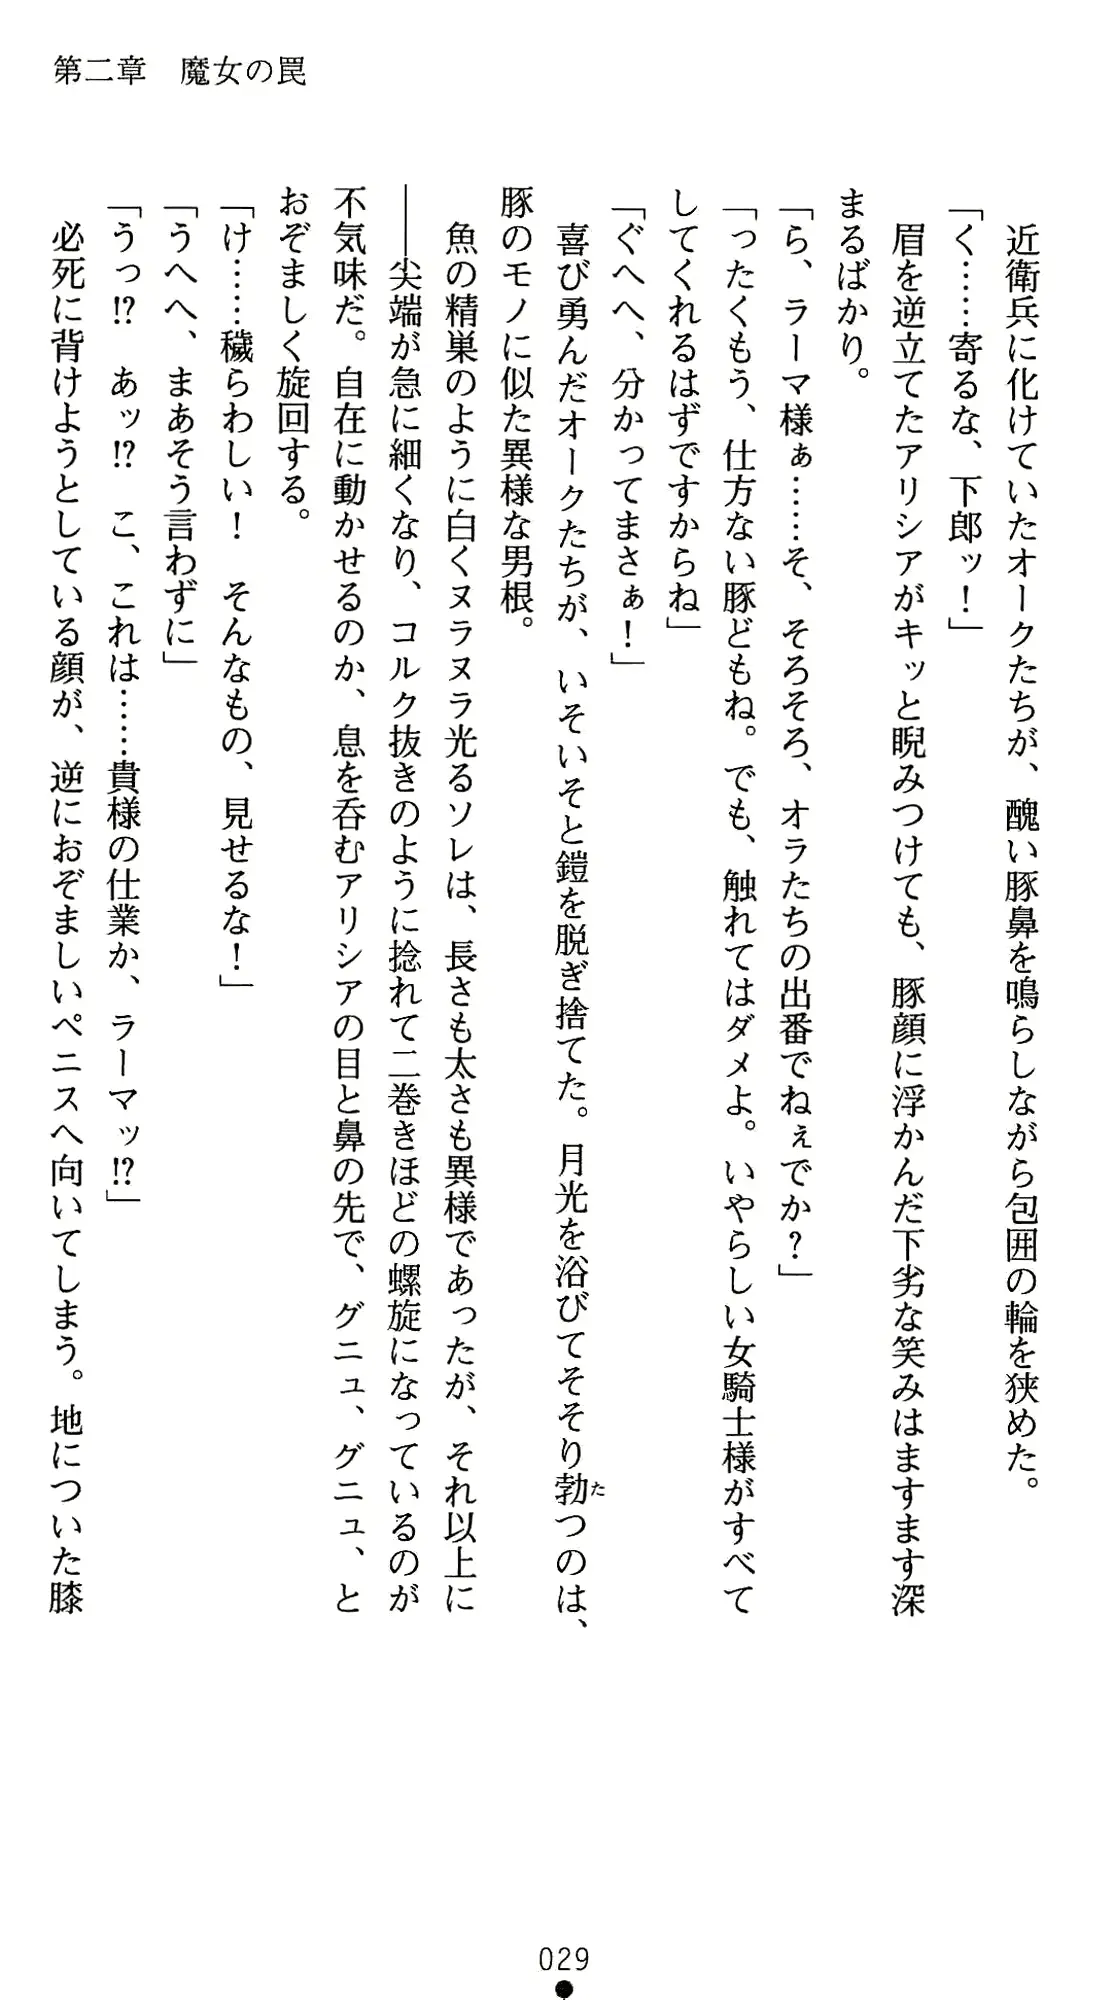 第二章　魔女の罠
　近衛兵に化けていたオークたちが、醜い豚鼻を鳴らしながら包囲の輪を狭めた。
「く……寄るな、下郎ッ！」
　眉を逆立てたアリシアがキッと睨みつけても、豚顔に浮かんだ下劣な笑みはますます深
まるばかり。
「ら、ラーマ様ぁ……そ、そろそろ、オラたちの出番でねぇでか？」
「ったくもう、仕方ない豚どもね。でも、触れてはダメよ。いやらしい女騎士様がすべて
してくれるはずですからね」
「ぐへへ、分かってまさぁ！」
　喜び勇んだオークたちが、いそいそと鎧を脱ぎ捨てた。月光を浴びてそそり勃つのは、
豚のモノに似た異様な男根。
　魚の精巣のように白くヌラヌラ光るソレは、長さも太さも異様であったが、それ以上に
――尖端が急に細くなり、コルク抜きのように捻れて二巻きほどの螺旋になっているのが
不気味だ。自在に動かせるのか、息を呑むアリシアの目と鼻の先で、グニュ、グニュ、と
おぞましく旋回する。
「け……穢らわしい！　そんなもの、見せるな！」
「うへへ、まあそう言わずに」
「うっ!?　あッ!?　こ、これは……貴様の仕業か、ラーマッ!?」
　必死に背けようとしている顔が、逆におぞましいペニスへ向いてしまう。地についた膝
029